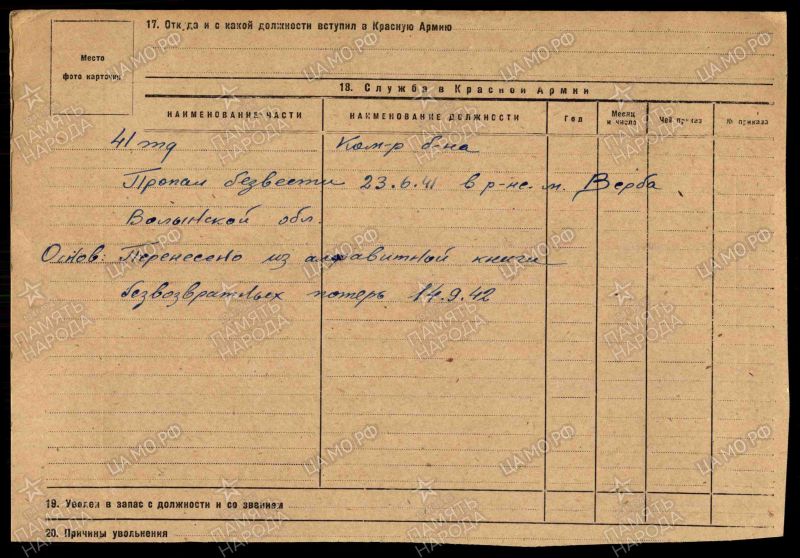 17. Откуда и с какой должности вступил в Красную Армию
Место
фото карточки
18. Служба в Красной Армии
НАИМЕНОВАНИЕ ЧАСТИ НАИМЕНОВАНИЕ ДОЛЖНОСТИ Год Месяц и число Чей приказ № приказа
41 тд Ком-р б-на
Пропал безвести 23.6.41 в р-не м. Верба
Волынской обл.
Основ: Перенесено из алфавитной книги
безвозвратных потерь 14.9.42
19. Уволен в запас с должности и со званием
20. Причины увольнения
ПАМЯТЬ НАРОДА
ЦАМО.РФ